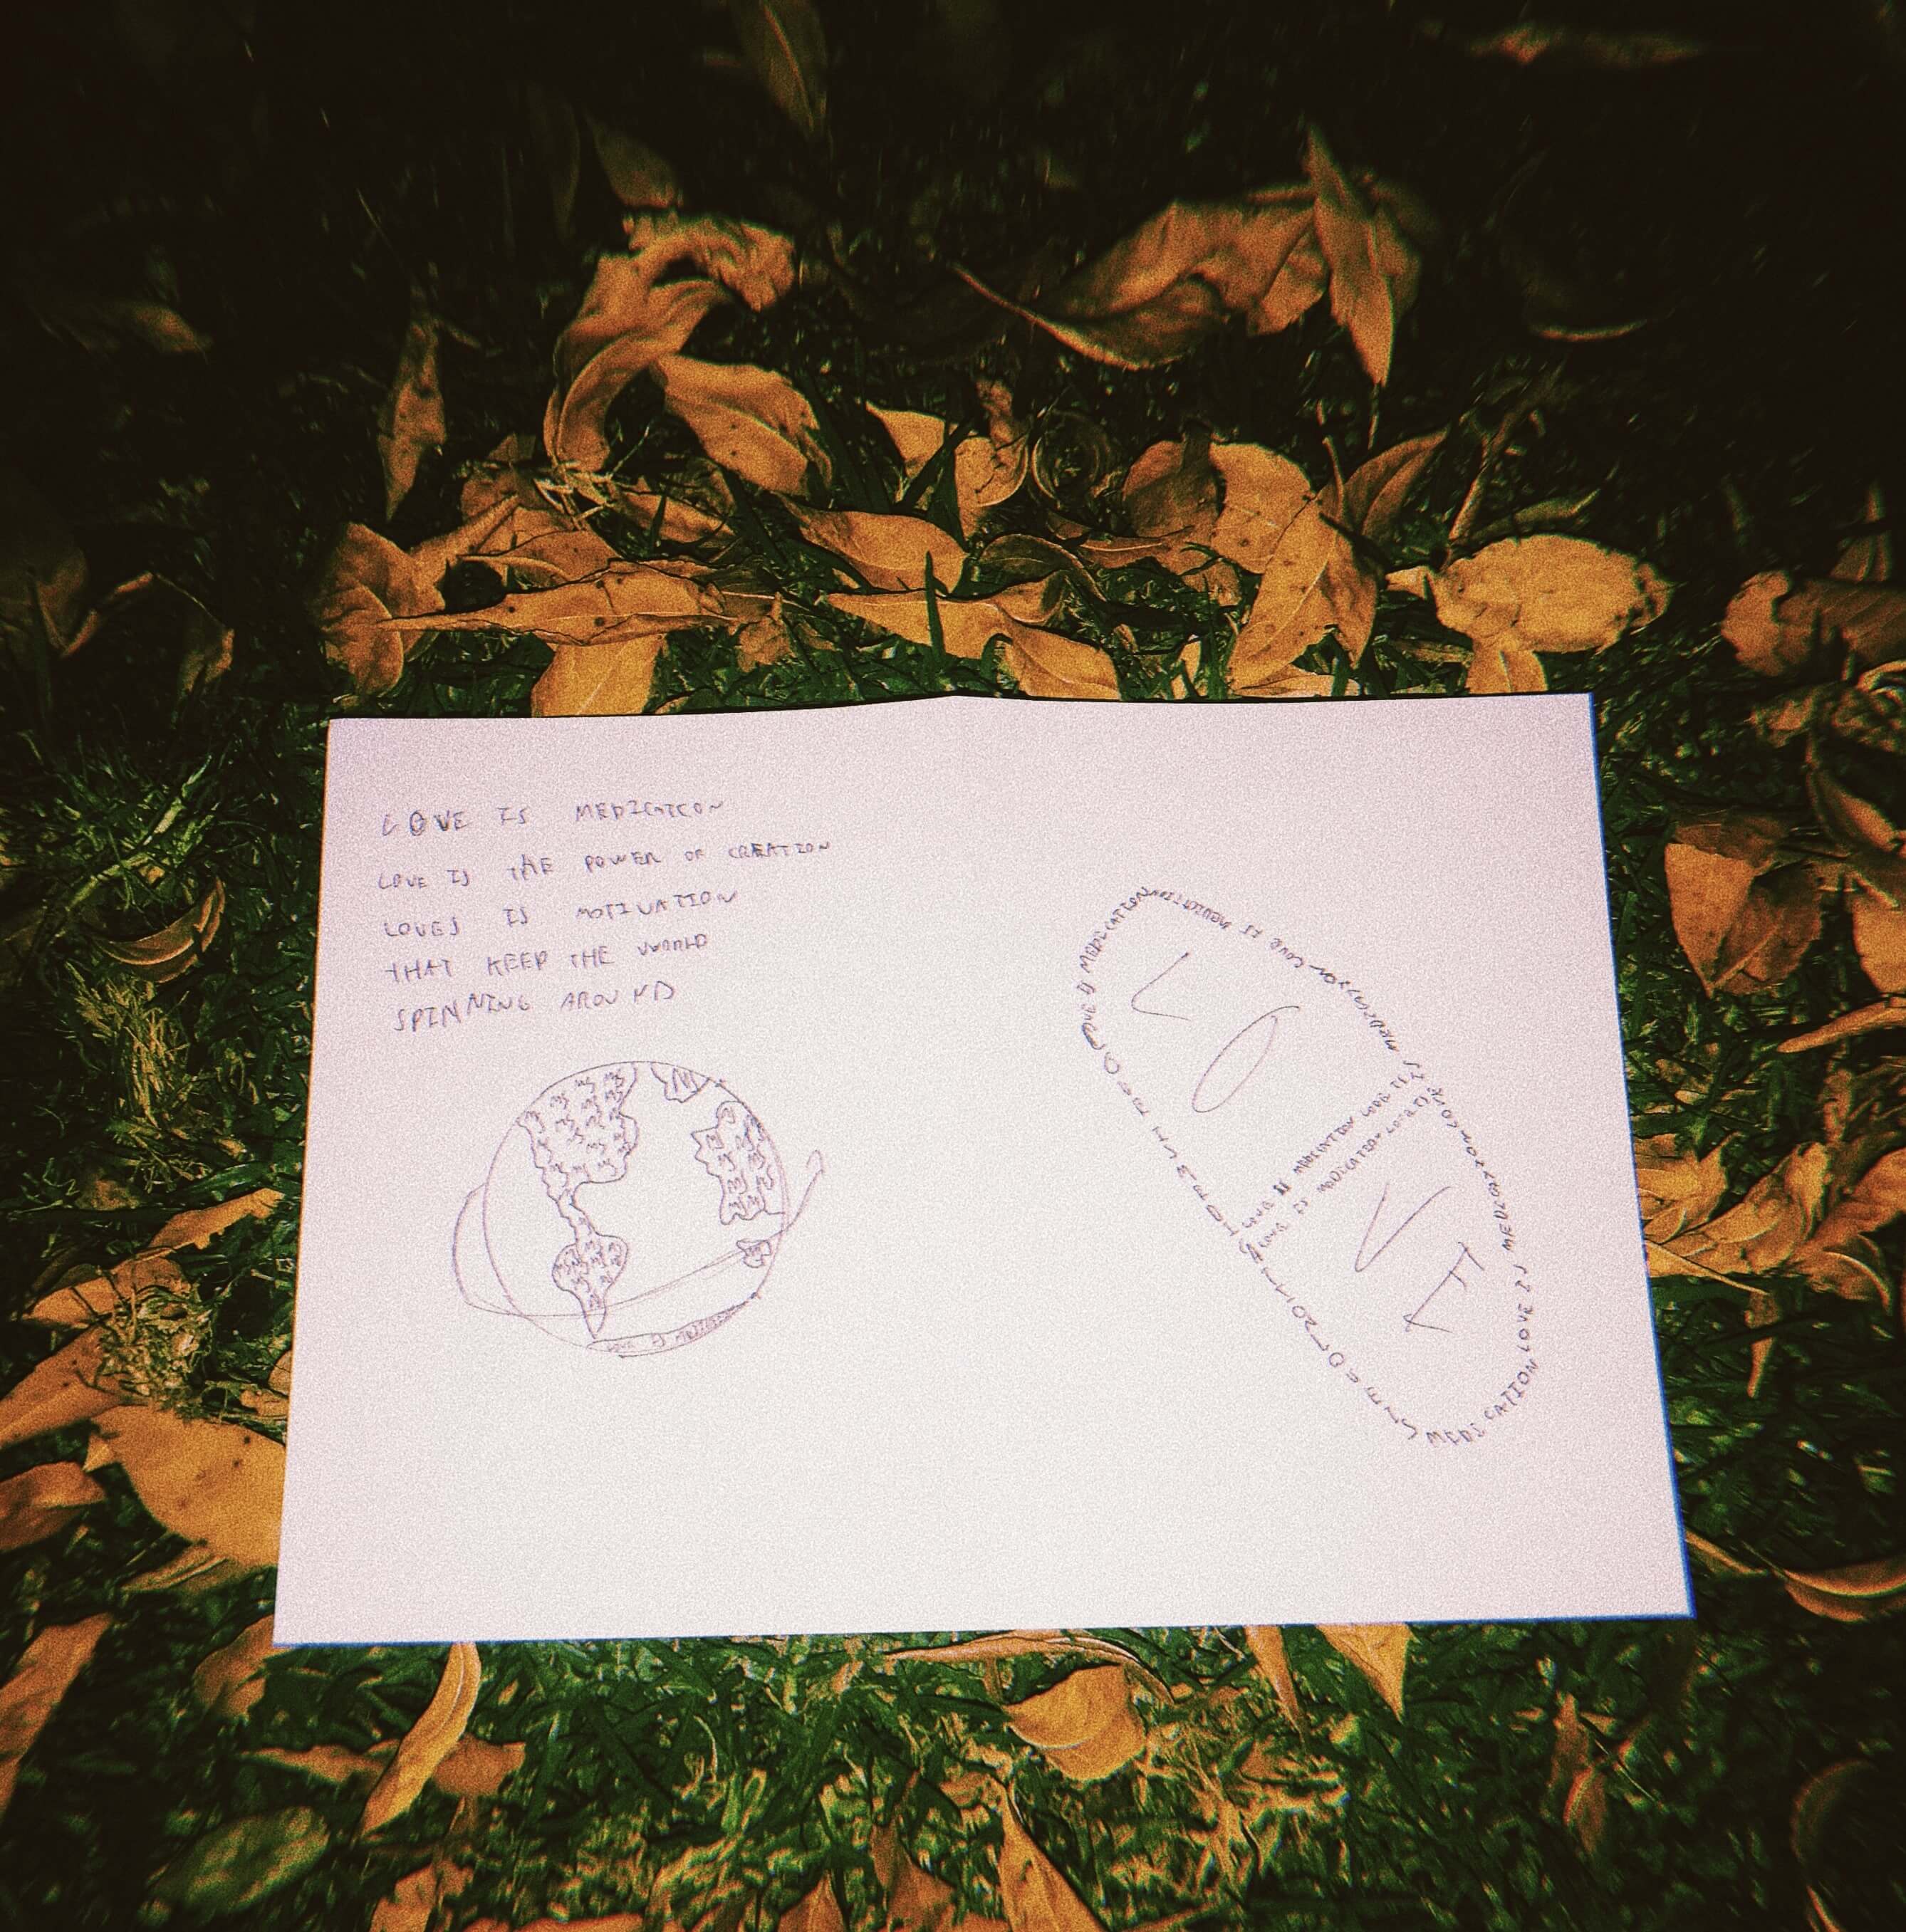 LOVE IS MEDICATION
LOVE IS THE POWER OF CREATION
LOVES IS MOTIVATION
THAT KEEP THE WORLD
SPINNING AROUND
LOVE IS MEDICATION
LOVE IS MEDICATION LOVE IS MEDICATION LOVE IS MEDICATION LOVE IS MEDICATION LOVE IS MEDICATION
L O
LOVE IS MEDICATION LOVE IS
LOVE IS MEDICATION LOVE IS
V E